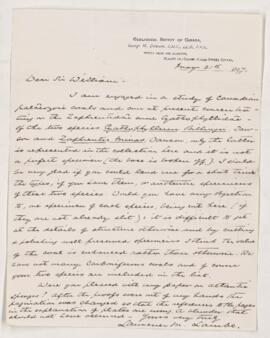 GEOLOGICAL SURVEY OF CANADA,
May 2th 1897.
Dear Sir William -
I am engaged in a study of Canadian
palaeozoic corals and am at present concentra-
ting on the Zaphrentidae and Cyathophyllidae.
Of the two species Cyathophyllum Billingsi Daw-
son and Zaphrentis Minas Dawson, only the latter
is represented in the collection here and it is not
a perfect specimen (the base is broken off). I should
be very glad if you could lend me for a short time
the types, if you have them, or authentic specimens
of these two species. Would you have any objection
to one specimen of each species, being cut here (if
they are not already slit); it is difficult to get
at the details of structure otherwise and by cutting
& polishing well preserved specimens I think the value
of the coral is enhanced rather than otherwise. We
have not many Carboniferous corals and of course
your two species are included in the list.
Were you pleased with my paper on Atlantic
sponges? After the proofs were out of my hands the
pagination was changed so that the references to the pages
in the explanation of plates are wrong, a blunder that
should not have occurred. Yours very truly
Lawrence M. Lambe.